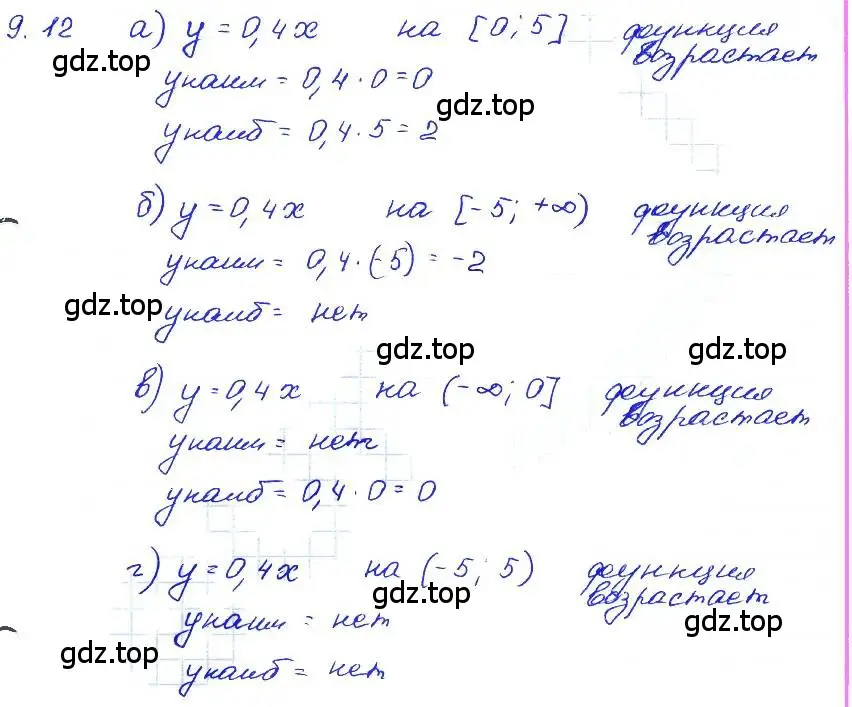 9.12 а) y = 0,4x на [0; 5] функция возрастает
gdz.top
yнаим = 0,4 · 0 = 0
gdz.top
yнаиб = 0,4 · 5 = 2
б) y = 0,4x на [-5; +∞) функция возрастает
yнаим = 0,4 · (-5) = -2
gdz.top
yнаиб = нет
gdz.top gdz.top
в) y = 0,4x на (-∞; 0] функция возрастает
yнаим = нет
yнаиб = 0,4 · 0 = 0
г) y = 0,4x на (-5; 5) функция возрастает
gdz.top
yнаим = нет
gdz.top
gdz.top
yнаиб = нет